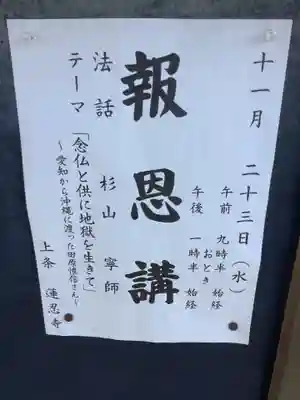 十一月 二十三日（水）
午前 九時半 始経
おとき
午後 一時半 始経
報恩講
法話 杉山 寧師
テーマ
「念仏と供に地獄を生きて」
～愛知から沖縄に渡った田原惟信さん～
上条 蓮忍寺